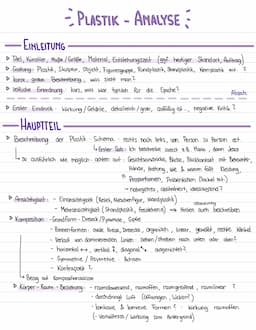 - PLASTIK - ANALYSE -
EINLEITUNG
Titel, Künstler, Maße / Größe, Material, Entstehungszeit (ggf. heutiger Standort, Auftrag)
Gattung: Plastik, Skulptur, Objekt, Figurengruppe, Rundplastik, Wandplastik,
kurze, grobe Beschreibung, was sieht man?
zeitliche Einordnung: kurz, was war typisch für die Epoche?
Erster Eindruck - wirkung / Gefühle, detailreich / grob, auffällig ist, negative Kritik?
HAUPTTEIL
Beschreibung der Plastik Schema: rechts nach links, von Person zu Person etc.
Erster Satz: Ich beschreibe zuerst z.B. Maria, dann Jesus
so ausführlich wie möglich - achten auf: Gesichtsausdrücke, Blicke, Blickkontakt mit Betrachter,
Hände, Haltung, wie & warum fällt Kleidung,
Proportionen,
naturgetreu, idealisiert?
Ansichtigkeit: - Einansichtigkeit (Relief, Nischenfigur, Wandplastik)
- Mehransichtigkeit (Standplastik, freistehend) → Seiten auch beschreiben
Komposition: - Grundform - Dreieck / Pyramide, Kreis
- Binnenformen: ovale, Kreise, Dreiecke, organisch, linear, gewölbt, rechte Winkel
- Verlauf von dominierenden Linien: Seiten / streben nach unten oder oben?
- horizontal, vertikal, diagonal ausgerichtet?
- Symmetrie / Asymmetrie - Achsen
- Kontrapost?
Bezug auf Kompositionsskizze
Körper - Raum - Beziehung: - raumabweisend, raumoffen, raumgreifend, raumlinear?
- durchdringt Luft (Öffnungen, Löcher)?
- konkave & konvexe Formen? - Wirkung: raumoffen